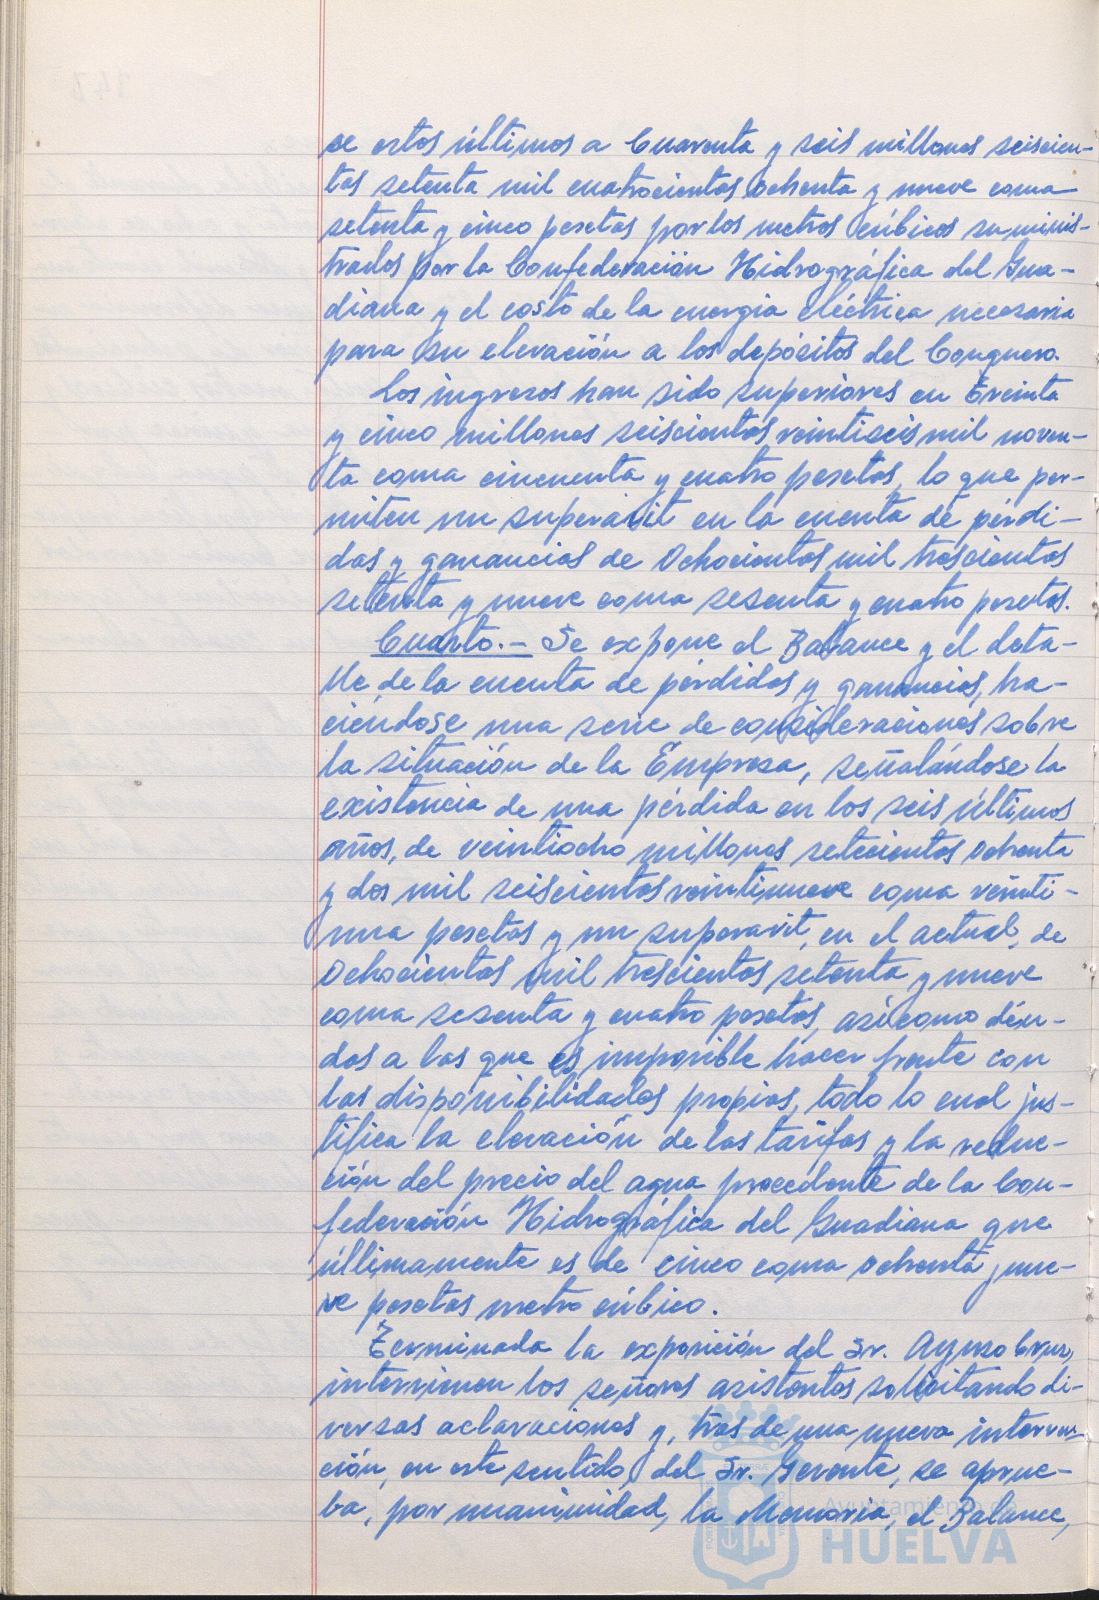 se estos últimos a Cuarenta y seis millones seiscien-
tas setenta mil cuatrocientas ochenta y nueve coma
setenta y cinco pesetas por los metros cúbicos suminis-
trados por la Confederación Hidrográfica del Gua-
diana y el costo de la energia eléctrica necesaria
para su elevación a los depósitos del Conquero.
Los ingresos han sido superiores en Treinta
y cinco millones seiscientas veintiseis mil noven-
ta coma cincuenta y cuatro pesetas, lo que per-
miten un superavit en la cuenta de pérdi-
das y ganancias de Ochocientas mil trescientas
setenta y nueve coma sesenta y cuatro pesetas.
Cuarto.- Se expone el Balance y el deta-
lle de la cuenta de pérdidas y ganancias, ha-
ciéndose una serie de consideraciones sobre
la situación de la Empresa, señalándose la
existencia de una pérdida en los seis últimos
años, de veintiocho millones setecientas ochenta
y dos mil seiscientas veintinueve coma veinti-
una pesetas y un superavit, en el actual, de
Ochocientas mil trescientas setenta y nueve
coma sesenta y cuatro pesetas, asi como deu-
das a las que es imposible hacer frente con
las disponibilidades propias, todo lo cual jus-
tifica la elevación de las tarifas y la reduc-
ción del precio del agua procedente de la Con-
federación Hidrográfica del Guadiana que
últimamente es de cinco coma ochenta y nue-
ve pesetas metro cúbico.
Terminada la exposición del Sr. Ayuso Cruz,
intervienen los señores asistentes solicitando di-
versas aclaraciones y, tras de una nueva interven-
ción, en este sentido, del Sr. Gerente, se aprue-
ba, por unanimidad, la Memoria, el Balance,
Ayuntamiento de
HUELVA